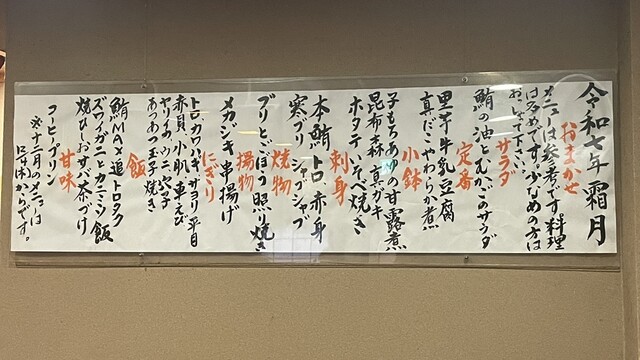 令和七年 霜月
おまかせ
メニューは参考です 料理
は多めです。少なめの方は
おっしゃって下さい。
サラダ
鮪の油とむかごのサラダ
定番
里芋牛乳豆腐
真だこやわらか煮
小鉢
子もちあゆの甘露煮
昆布森 真ガキ
ホタテ いそべ焼き
刺身
本鮪 トロ 赤身
寒ブリ シャブシャブ
焼物
ブリとごぼう照り焼き
揚物
メカジキ串揚げ
にぎり
トロ カワハギ サヨリ 平目
赤貝 小肌 車えび
ヤリイカ ウニ 穴子
あつあつ玉子焼き
飯
鮪MAX追トロタク
ズワイガニとカニミソ飯
焼ひしおすば茶づけ
甘味
コーヒープリン
※十二月のメニューは